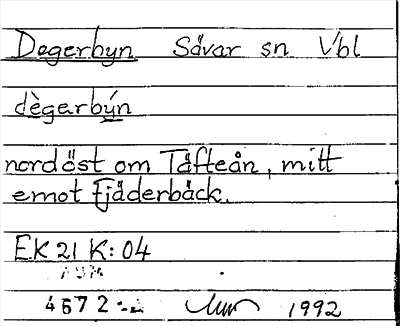 Degerbyn Sävar sn Vbl
dègerbýn
nordöst om Täfteån, mitt
emot Fjäderbäck.
EK 21 K: 04
4672 1992